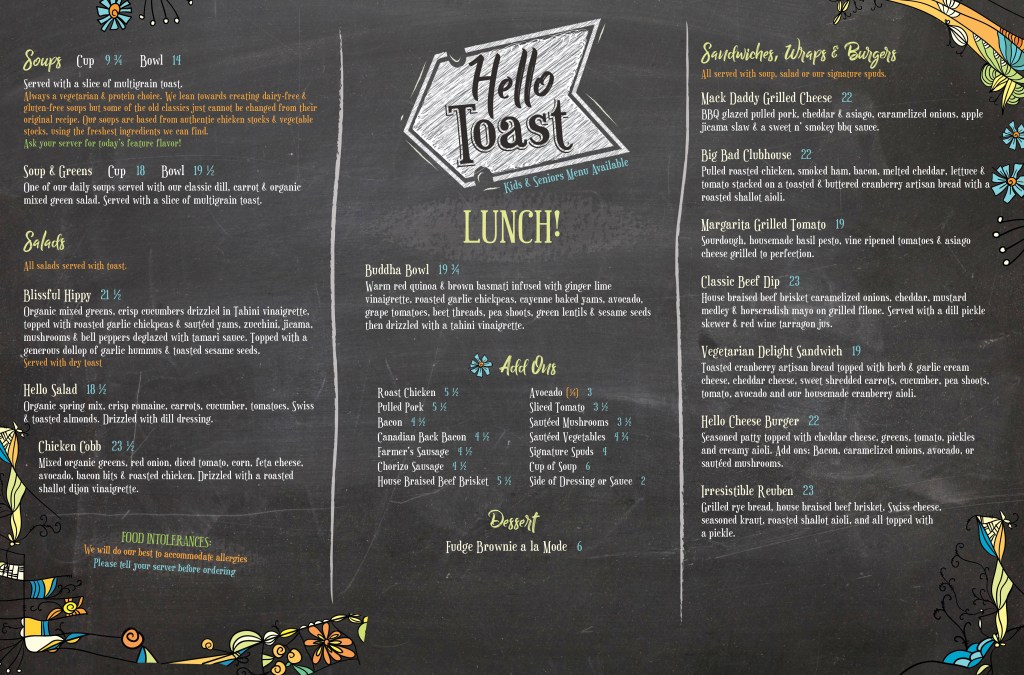 Soups Cup 9 ¾ Bowl 14
Served with a slice of multigrain toast.
Always a vegetarian & protein choice. We lean towards creating dairy-free &
gluten-free soups but some of the old classics just cannot be changed from their
original recipe. Our soups are based from authentic chicken stocks & vegetable
stocks, using the freshest ingredients we can find.
Ask your server for today's feature flavor!
Soup & Greens Cup 18 Bowl 19 ½
One of our daily soups served with our classic dill, carrot & organic
mixed green salad. Served with a slice of multigrain toast.
Salads
All salads served with toast.
Blissful Hippy 21 ½
Organic mixed greens, crisp cucumbers drizzled in Tahini vinaigrette,
topped with roasted garlic chickpeas & sautéed yams, zucchini, jicama,
mushrooms & bell peppers deglazed with tamari sauce. Topped with a
generous dollop of garlic hummus & toasted sesame seeds.
Served with dry toast
Hello Salad 18 ½
Organic spring mix, crisp romaine, carrots, cucumber, tomatoes, Swiss
& toasted almonds. Drizzled with dill dressing.
Chicken Cobb 23 ½
Mixed organic greens, red onion, diced tomato, corn, feta cheese,
avocado, bacon bits & roasted chicken. Drizzled with a roasted
shallot dijon vinaigrette.
FOOD INTOLERANCES:
We will do our best to accommodate allergies
Please tell your server before ordering
Hello
Toast
Kids & Seniors Menu Available
LUNCH!
Buddha Bowl 19 ¾
Warm red quinoa & brown basmati infused with ginger lime
vinaigrette, roasted garlic chickpeas, cayenne baked yams, avocado,
grape tomatoes, beet threads, pea shoots, green lentils & sesame seeds
then drizzled with a tahini vinaigrette.
Add Ons
Roast Chicken 5 ½
Pulled Pork 5 ½
Bacon 4 ½
Canadian Back Bacon 4 ½
Farmer's Sausage 4 ½
Chorizo Sausage 4 ½
House Braised Beef Brisket 5 ½
Avocado (½) 3
Sliced Tomato 3 ½
Sautéed Mushrooms 3 ½
Sautéed Vegetables 4 ¾
Signature Spuds 4
Cup of Soup 6
Side of Dressing or Sauce 2
Dessert
Fudge Brownie a la Mode 6
Sandwiches, Wraps & Burgers
All served with soup, salad or our signature spuds.
Mack Daddy Grilled Cheese 22
BBQ glazed pulled pork, cheddar & asiago, caramelized onions, apple
jicama slaw & a sweet n' smokey bbq sauce.
Big Bad Clubhouse 22
Pulled roasted chicken, smoked ham, bacon, melted cheddar, lettuce &
tomato stacked on a toasted & buttered cranberry artisan bread with a
roasted shallot aioli.
Margarita Grilled Tomato 19
Sourdough, housemade basil pesto, vine ripened tomatoes & asiago
cheese grilled to perfection.
Classic Beef Dip 23
House braised beef brisket caramelized onions, cheddar, mustard
medley & horseradish mayo on grilled filone. Served with a dill pickle
skewer & red wine tarragon jus.
Vegetarian Delight Sandwich 19
Toasted cranberry artisan bread topped with herb & garlic cream
cheese, cheddar cheese, sweet shredded carrots, cucumber, pea shoots,
tomato, avocado and our housemade cranberry aioli.
Hello Cheese Burger 22
Seasoned patty topped with cheddar cheese, greens, tomato, pickles
and creamy aioli. Add ons: Bacon, caramelized onions, avocado, or
sautéed mushrooms.
Irresistible Reuben 23
Grilled rye bread, house braised beef brisket, Swiss cheese,
seasoned kraut, roasted shallot aioli, and all topped with
a pickle.